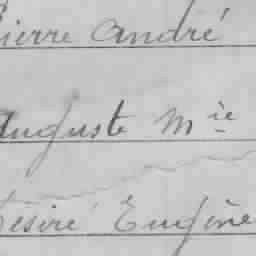 Pierre André
Auguste Mie
Désiré Eugène